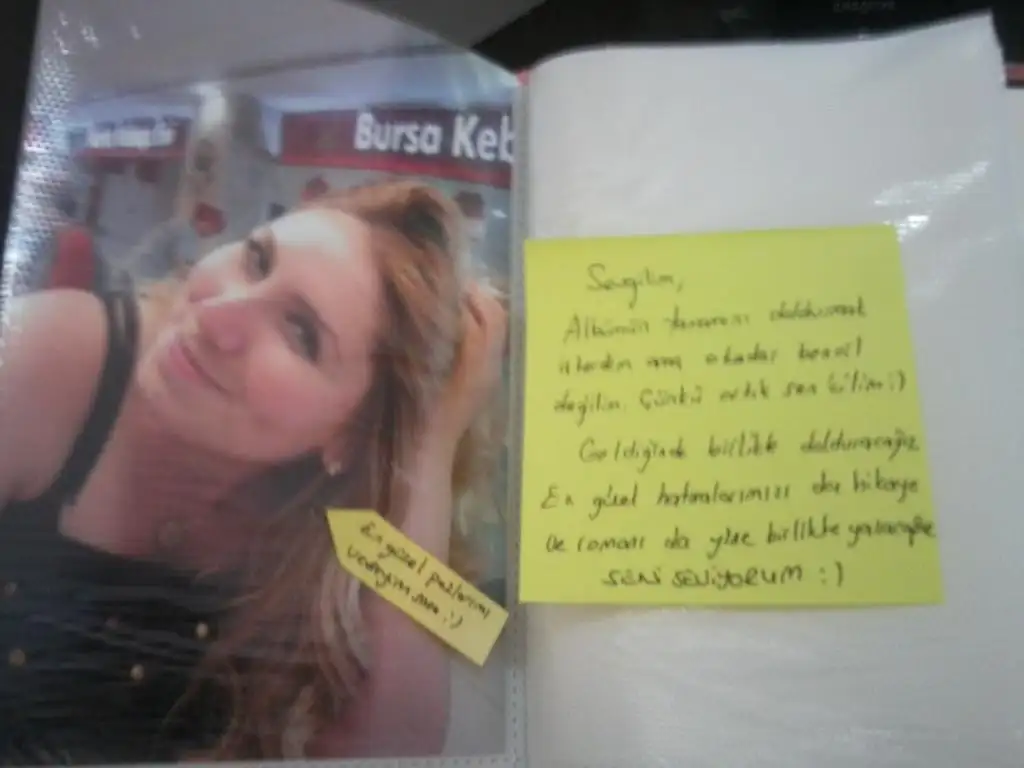 Bursa Keb
Sevgilim,
Albümün tamamını doldurmak
isterdim ama o kadar bencil
değilim. Çünkü artık sen :)
Geldiğinde birlikte dolduracağız
En güzel hatıralarımızı da hikaye
ve romanı da yine birlikte yazacağız
SENİ SEVİYORUM :)
En güzel pozlarını
vereyim sana :)